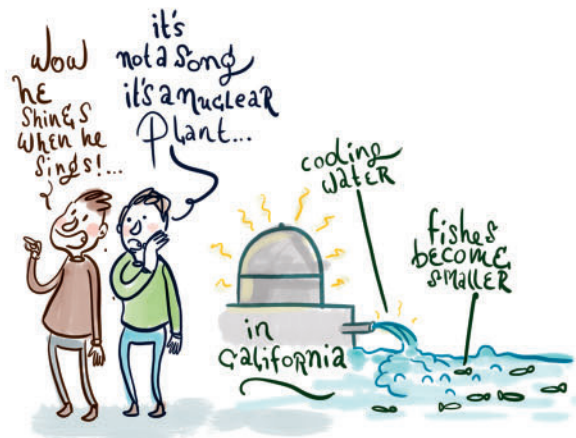 Wow
he
shines
when he
sings!...
it's
not a song
it's a nuclear
plant...
cooling
water
fishes
become
smaller
in
California